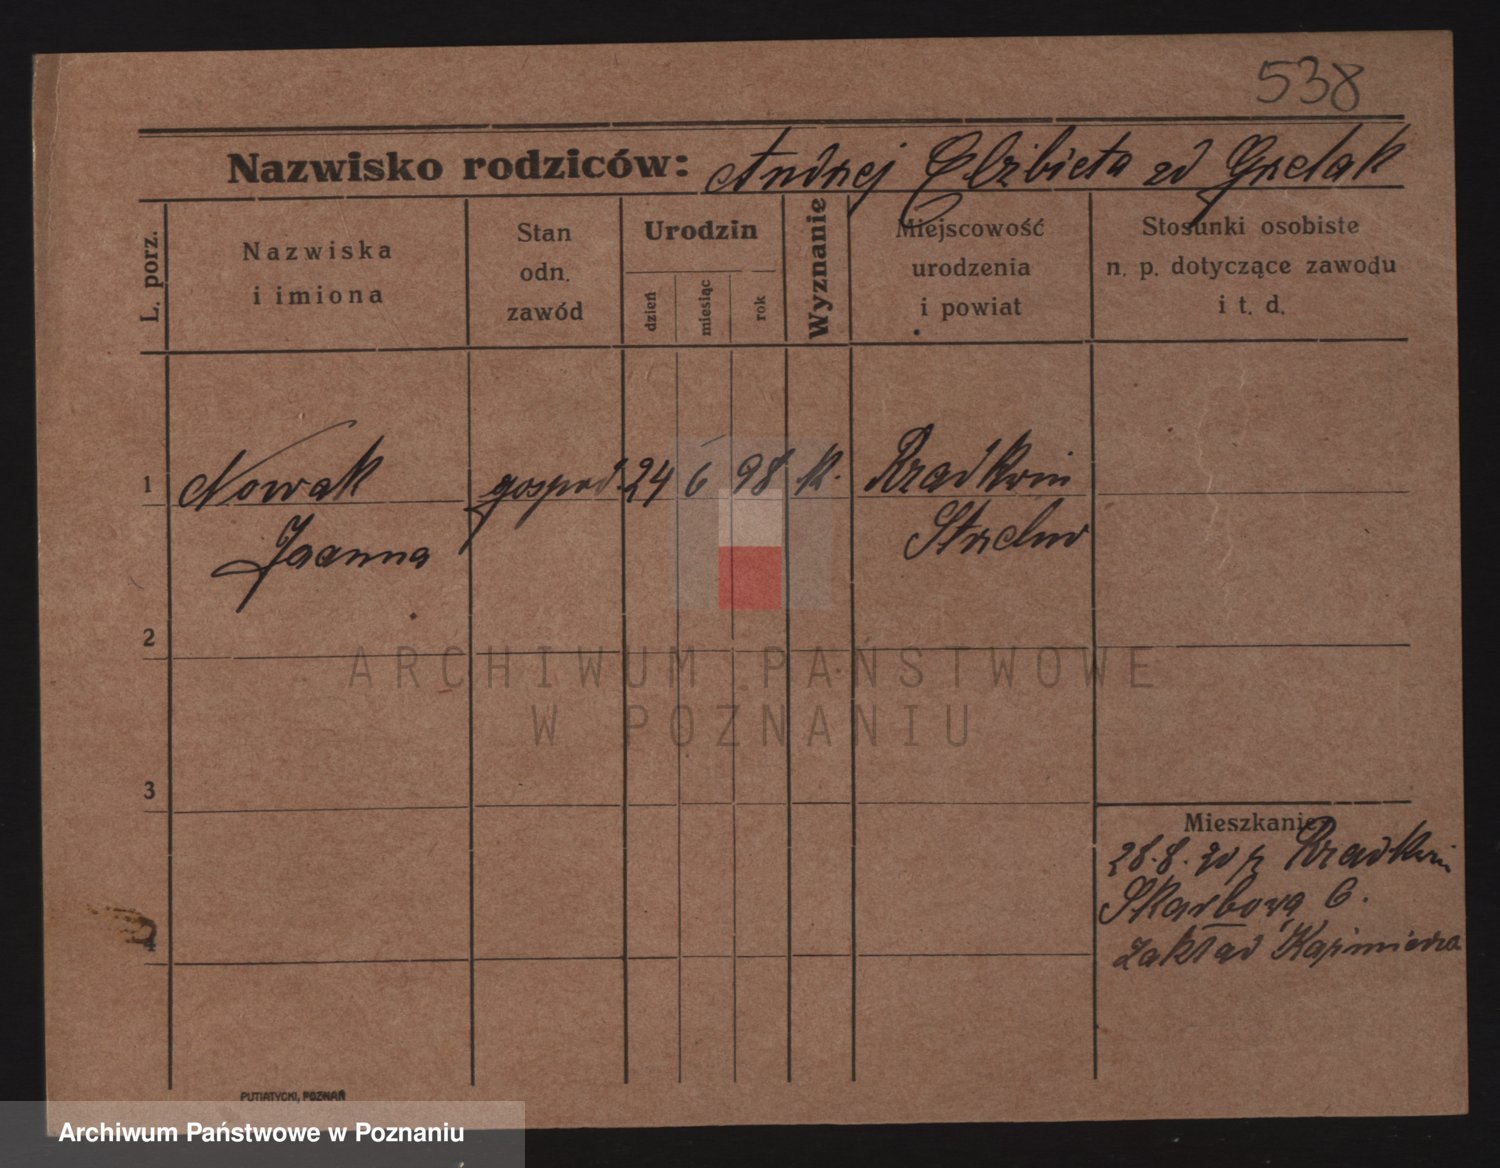 538
Nazwisko rodziców: Andrzej Elżbieta zd Grelak
L. porz.
Nazwiska
i imiona
Stan
odn.
zawód
Urodzin
dzień
miesiąc
rok
Wyznanie
Miejscowość
urodzenia
i powiat
Stosunki osobiste
n. p. dotyczące zawodu
i t. d.
1 Nowak gospod. 24 6 98 k. Rzadkwin
Joanna Strzelno
2
ARCHIWUM PAŃSTWOWE
W POZNANIU
3
Mieszkanie
28.8. 20 z Rzadkwin
Skarbowa 6.
zakład Kazimierza
4
PUTIATYCKI, POZNAŃ
Archiwum Państwowe w Poznaniu